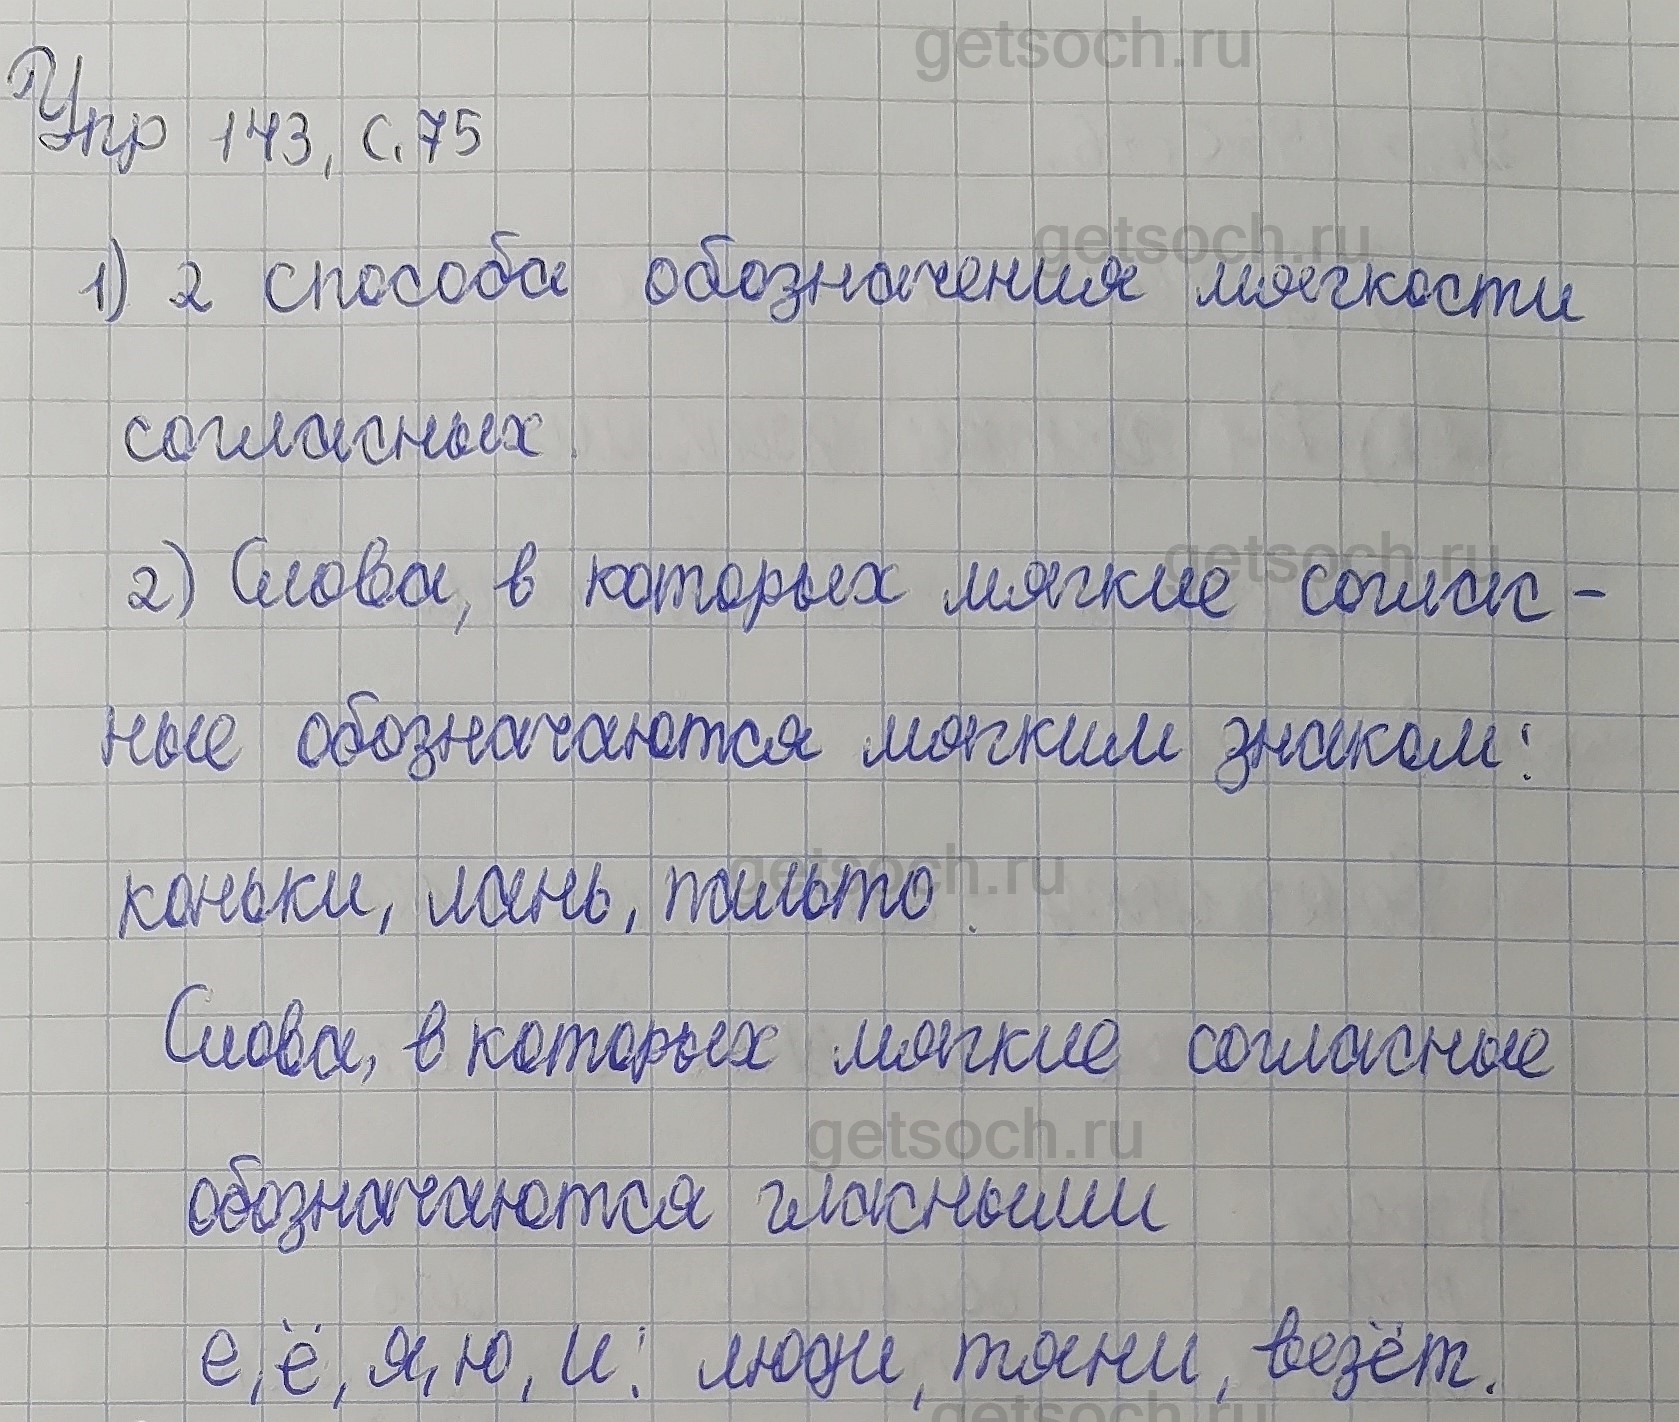 getsoch.ru
Упр 143, с. 75
getsoch.ru
1) 2 способа обозначения мягкости
согласных.
getsoch.ru
2) Слова, в которых мягкие соглас-
ные обозначаются мягким знаком:
getsoch.ru
коньки, лань, пальто.
Слова, в которых мягкие согласные
getsoch.ru
обозначаются гласными
е, ё, я, ю, и: люди, тяни, везёт.
getsoch.ru